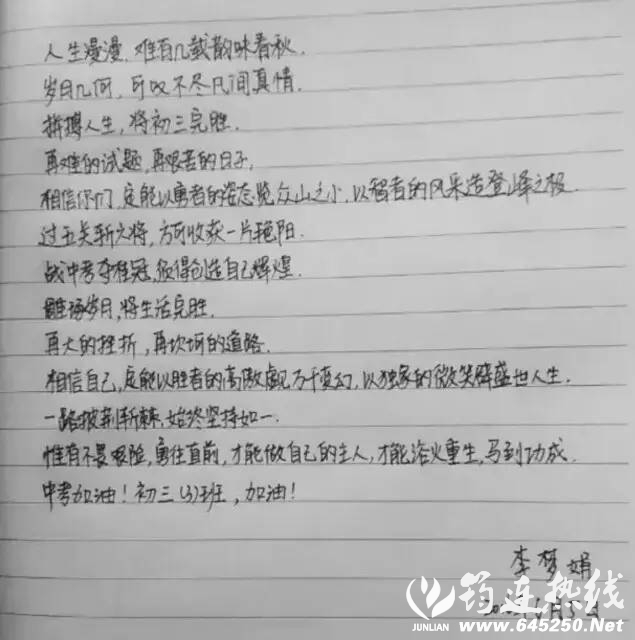 人生漫漫，难有几载韵味春秋．
岁月几何，可叹不尽凡间真情．
拼搏人生，将初三完胜．
再难的试题，再艰苦的日子，
相信你们，定能以勇者的姿态览众山之小，以智者的风采造登峰之极．
过五关斩六将，方可收获一片艳阳．
战中考夺桂冠，彼得创造自己辉煌．
雕琢岁月，将生活完胜．
再大的挫折，再坎坷的道路．
相信自己，定能以胜者的高傲万千变幻，以独家的微笑盛世人生．
一路披荆斩棘，始终坚持如一．
惟有不畏艰险，勇往直前，才能做自己的主人，才能浴火重生，马到功成．
中考加油！初三(3)班，加油！
李梦娟
筠连热线
JUNLIAN www.645250.Net